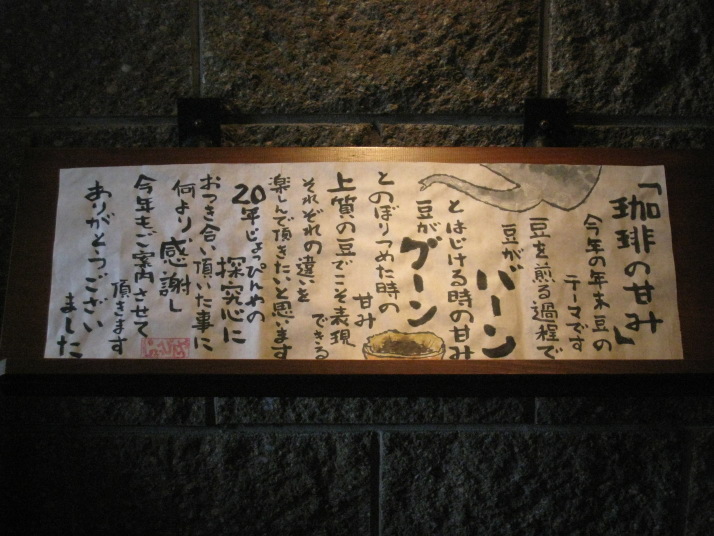 「珈琲の甘み」
今年の年末豆の
テーマです
豆を煎る過程で
豆が
バーン
とはじける時の甘み
豆が
グーン
とのぼりつめた時の
甘み
上質の豆でこそ表現
できる
それぞれの違いを
楽しんで頂きたいと思います
20年じょっぴんやの
探究心に
おつき合い頂いた事に
何より感謝し
今年もご案内させて
頂きます
ありがとうござい
ました